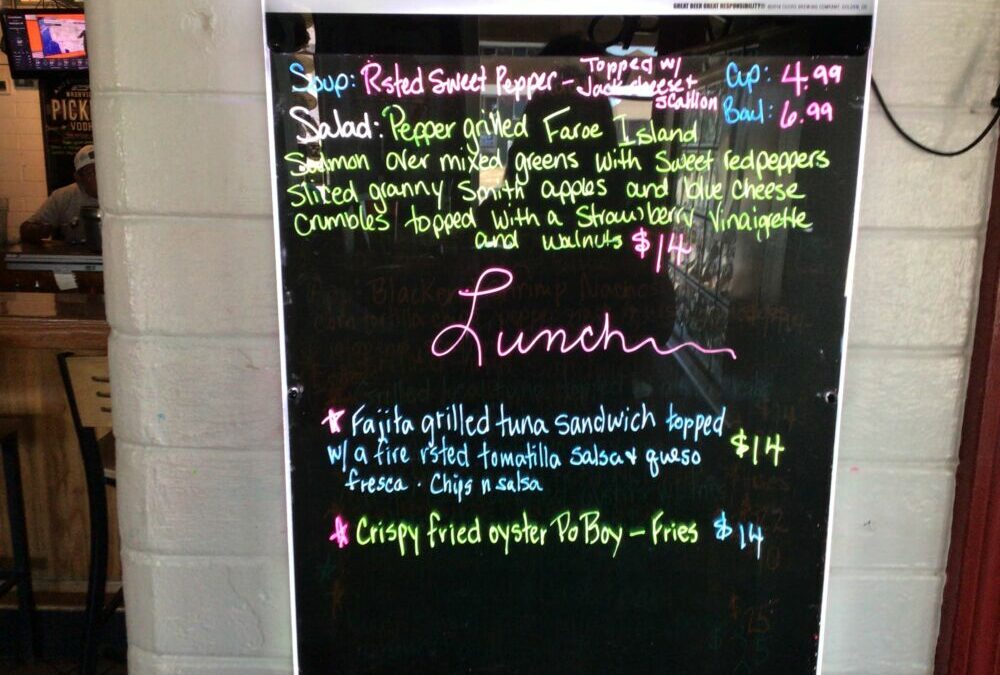 GREAT BEER GREAT RESPONSIBILITY®
Soup: Rsted Sweet Pepper - Topped w/
Jack cheese +
scallion
Cup: 4.99
Bowl: 6.99
Salad: Pepper grilled Faroe Island
Salmon over mixed greens with Sweet redpeppers
Sliced granny Smith apples and blue cheese
Crumbles topped with a Strawberry Vinaigrette
and walnuts $14
Lunch
Fajita grilled tuna sandwich topped
w/ a fire rsted tomatilla salsa + queso
fresca. Chips n salsa
$14
Crispy fried oyster Po Boy - Fries $14